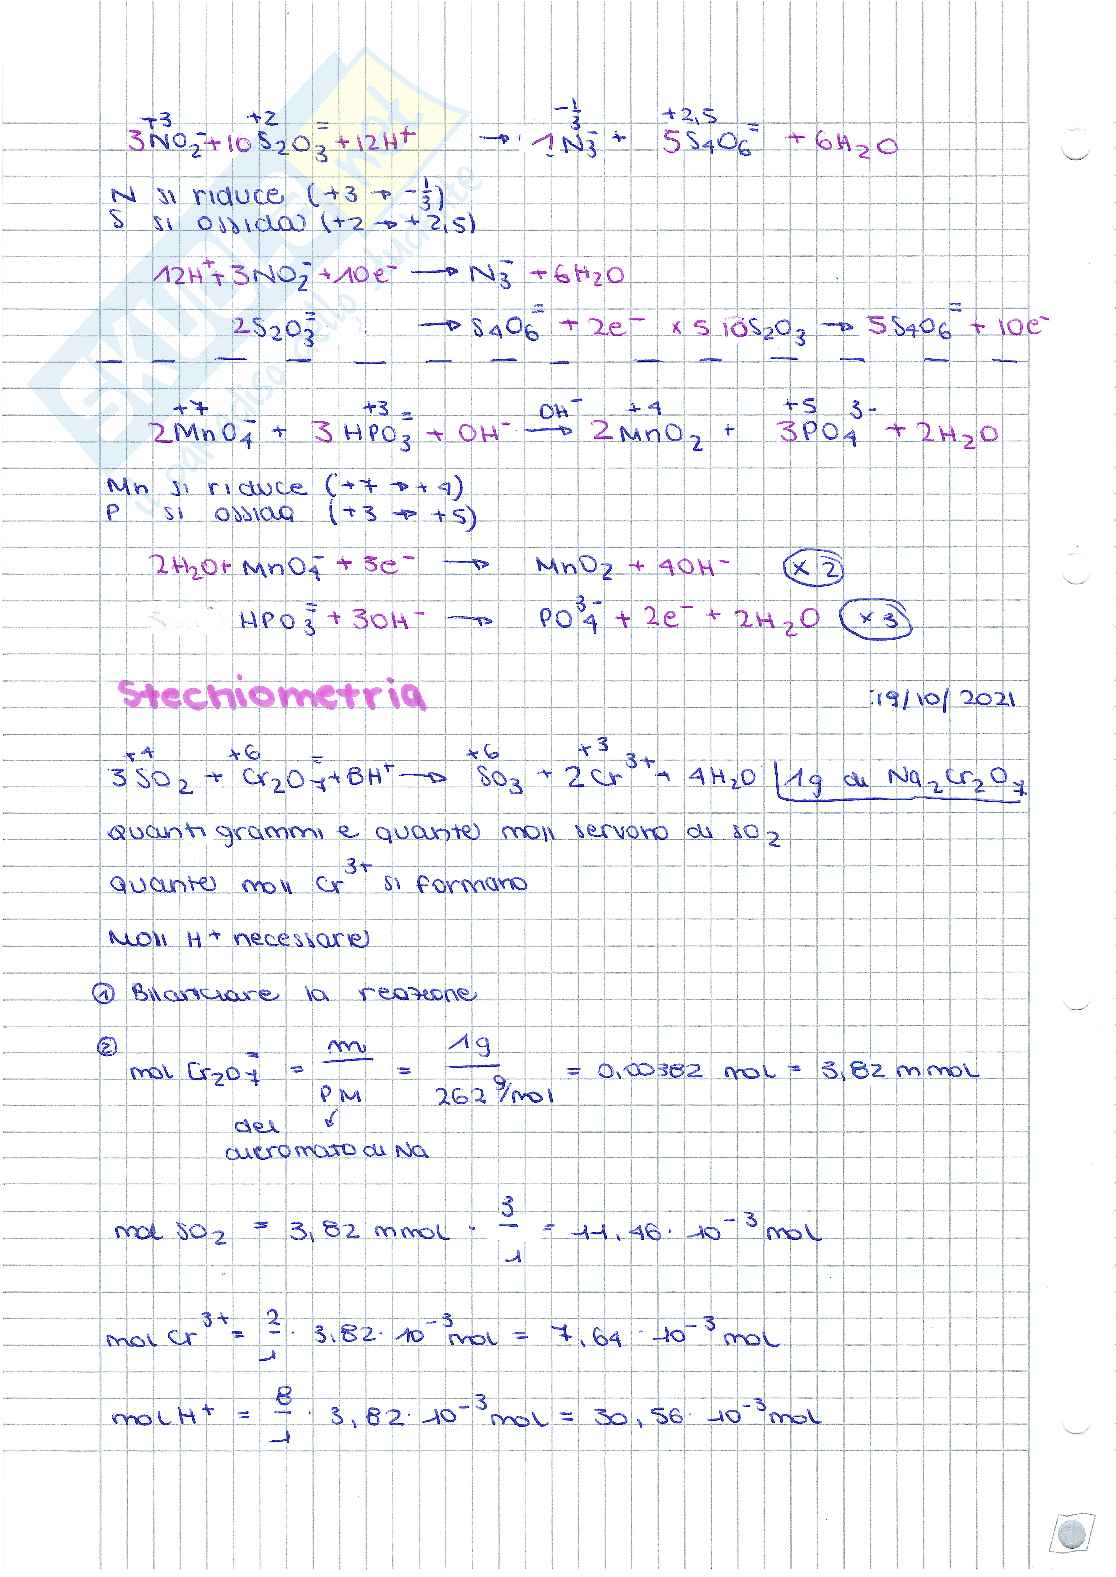 +3 +2 -1/3 +2,5
3NO₂⁻ + 10 S₂O₃⁼ + 12H⁺ → 1N₃⁻ + 5S₄O₆⁼ + 6H₂O
N si riduce (+3 → -1/3)
S si ossida (+2 → +2,5)
12H⁺ + 3NO₂⁻ + 10e⁻ → N₃⁻ + 6H₂O
2S₂O₃⁼ → S₄O₆⁼ + 2e⁻ ×5 10S₂O₃ → 5S₄O₆⁼ + 10e⁻
+7 +3 OH⁻ +4 +5
2MnO₄⁻ + 3HPO₃⁼ + OH⁻ → 2MnO₂ + 3PO₄³⁻ + 2H₂O
Mn si riduce (+7 → +4)
P si ossida (+3 → +5)
2H₂O + MnO₄⁻ + 3e⁻ → MnO₂ + 4OH⁻ ×2
HPO₃⁼ + 3OH⁻ → PO₄³⁻ + 2e⁻ + 2H₂O ×3
Stechiometria 19/10/2021
+4 +6 +6 +3
3SO₂ + Cr₂O₇⁼ + 8H⁺ → SO₃ + 2Cr³⁺ + 4H₂O 1g di Na₂Cr₂O₇
quanti grammi e quante moli servono di SO₂
quante moli Cr³⁺ si formano
Moli H⁺ necessarie
① Bilanciare la reazione
② mol Cr₂O₇⁼ = m/PM = 1g/262 g/mol = 0,00382 mol = 3,82 mmol
del
dicromato di Na
mol SO₂ = 3,82 mmol · 3/1 = 11,46 · 10⁻³ mol
mol Cr³⁺ = 2/1 · 3,82 · 10⁻³ mol = 7,64 · 10⁻³ mol
mol H⁺ = 8/1 · 3,82 · 10⁻³ mol = 30,56 · 10⁻³ mol